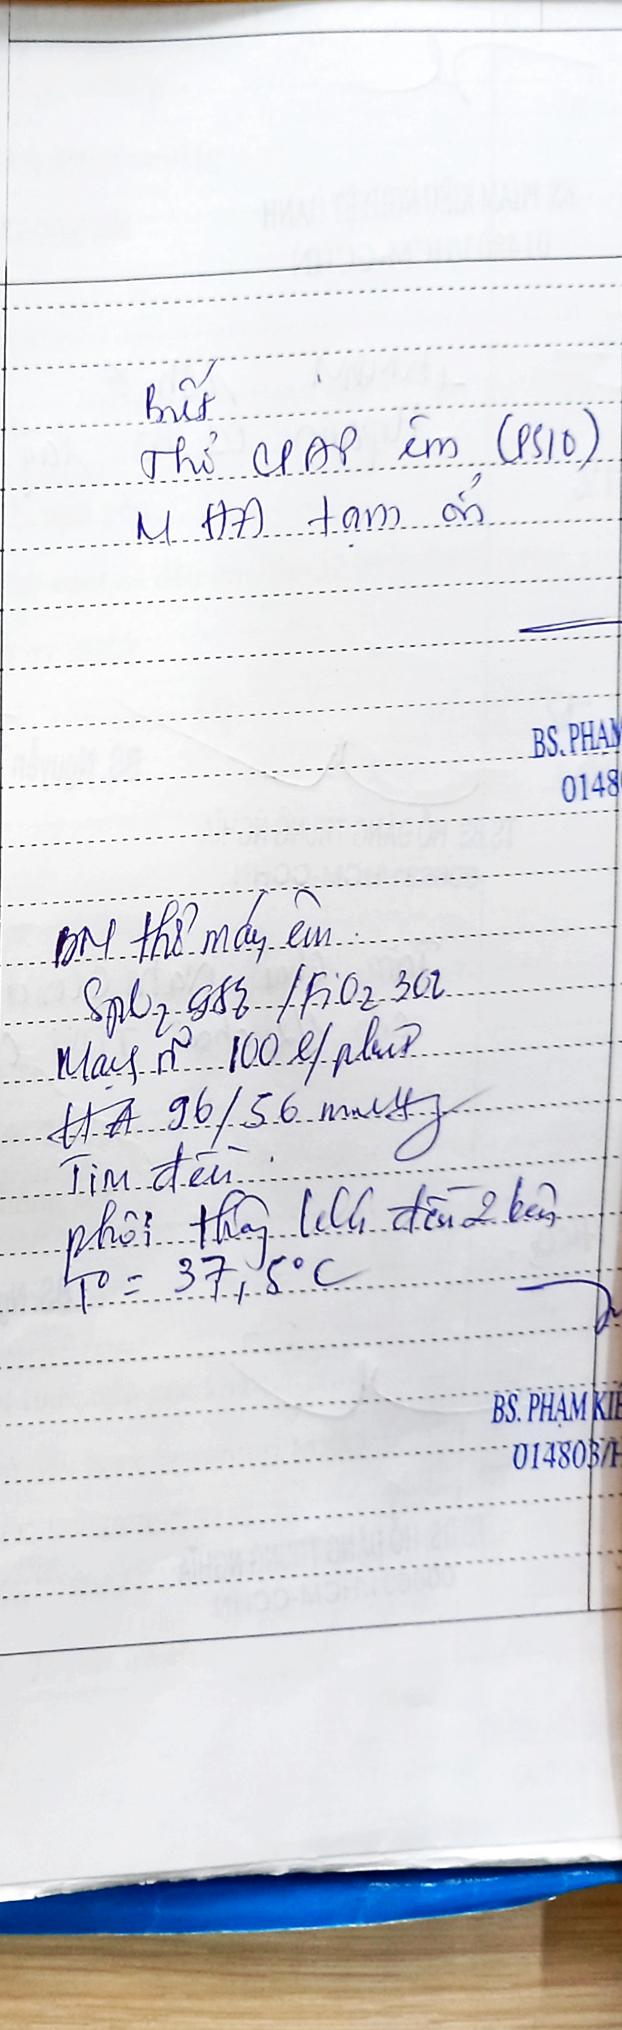 Thở CPAP êm (PS10)
M HA tạm ổn
BS. PHẠM
0148
BN thở máy êm
SpO2 98% / FiO2 30%
Mạch 100 l/phút
HA 96/56 mmHg
Tim đều
phổi thông đều 2 bên
T° = 37,5°C
BS. PHẠM KI
014803/H